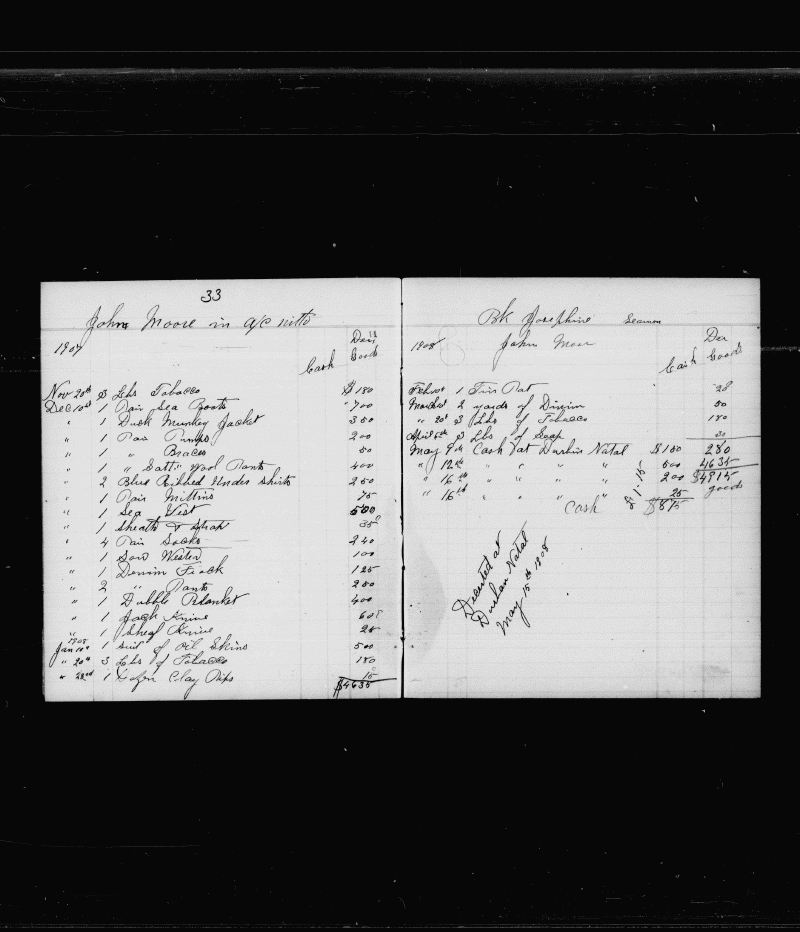 33
John Moore in a/c with
1907
Cash Goods
Nov 20th 3 Lbs Tobacco $ 180
Dec 10th 1 Pair Sea Boots " 700
" 1 Dusk Munkey Jacket 350
" 1 Pair Pumps 200
" 1 " Braces 50
" 1 " Satt." Wool Pants 400
" 2 Blue Ribbed Under Shirts 250
" 1 Pair Mittins 75
" 1 Sea Vest 500
" 1 Sheath & Strap 35
" 4 Pair Socks 240
" 1 Sow Wester 100
" 1 Denim Frock 125
" 2 " Pants 250
" 1 Dubble Blanket 400
" 1 Jack Knive 60
" 1 Sheaf Knive 25
1908
Jan 10th 1 Suit of Oil Skins 500
" 20th 3 Lbs of Tobacco 180
" 22nd 1 Dozen Clay Pips 15
$4635
Bk Josephine Seamon
1908 John Moor
Cash Goods
Feb 1 Tin Pot 20
March 2 yards of Dinim 50
" 20th 3 Lbs of Tobacco 180
April 6th 3 Lbs of Soap 30
May 9th Cash at Durbin Natal $100 280
" 12th " " " " 500 4635
" 16th " " " " 200 $4915
" 16th " " " " £1-15 25 goods
Cash $875
Deserted at
Durban Natal
May 15th 1908